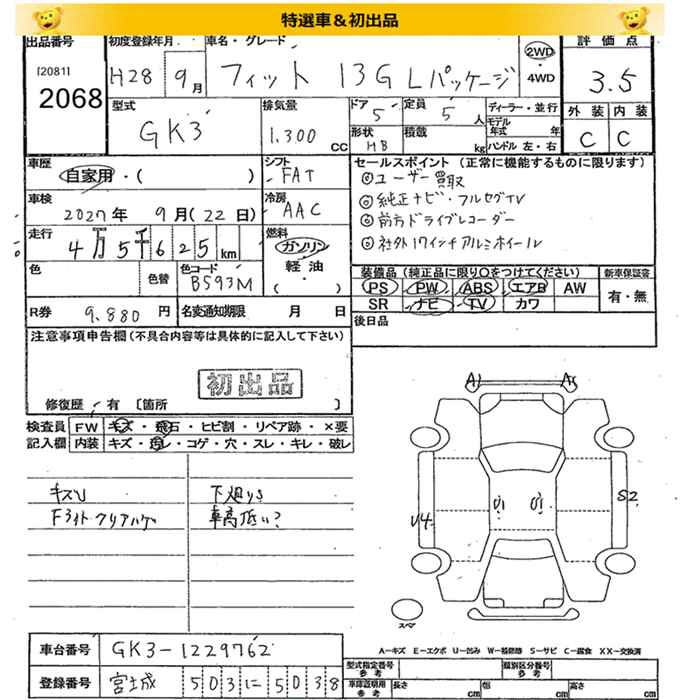 特選車＆初出品
出品番号 初度登録年月 車名・グレード 2WD・4WD 評価点
[2081]
2068
H28年 9月 フィット 13G Lパッケージ 3.5
型式 排気量 ドア 定員 ディーラー・並行 外装 内装
GK3 1.300 CC 5 5人 モデル年式 年 C C
形状 積載 ハンドル 左・右
HB kg
車歴 シフト セールスポイント (正常に機能するものに限ります)
自家用・( ) FAT ◎ユーザー買取
車検 冷房 ◎純正ナビ・フルセグTV
2027年 9月(22日) AAC ◎前方ドライブレコーダー
走行 燃料 ◎社外17インチアルミホイール
4万5千625km ガソリン
軽油
・( )
色 色替 色コード 装備品 (純正品に限り○をつけてください) 新車保証書
B593M PS PW ABS エアB AW 有・無
SR ナビ TV カワ
R券 9,880円 名変通知期限 月 日 後日品
注意事項申告欄 (不具合内容等は具体的に記入して下さい)
初出品
修復歴 有 [箇所 ]
検査員 FW キズ・飛石・ヒビ割・リペア跡・×要
記入欄 内装 キズ・汚レ・コゲ・穴・スレ・キレ・破レ
キズU 下廻りS
Fライトクリアハゲ 車高低い?
A1 A1
U4 U1 U1 S2
スペア
A－キズ E－エクボ U－凹み W－補修跡 S－サビ C－腐食 XX－交換済
車台番号 GK3-1229762
登録番号 宮城 503に5038
型式指定番号 参考 類別区分番号 参考
車庫証明用 参考 長さ cm 幅 cm 高さ cm